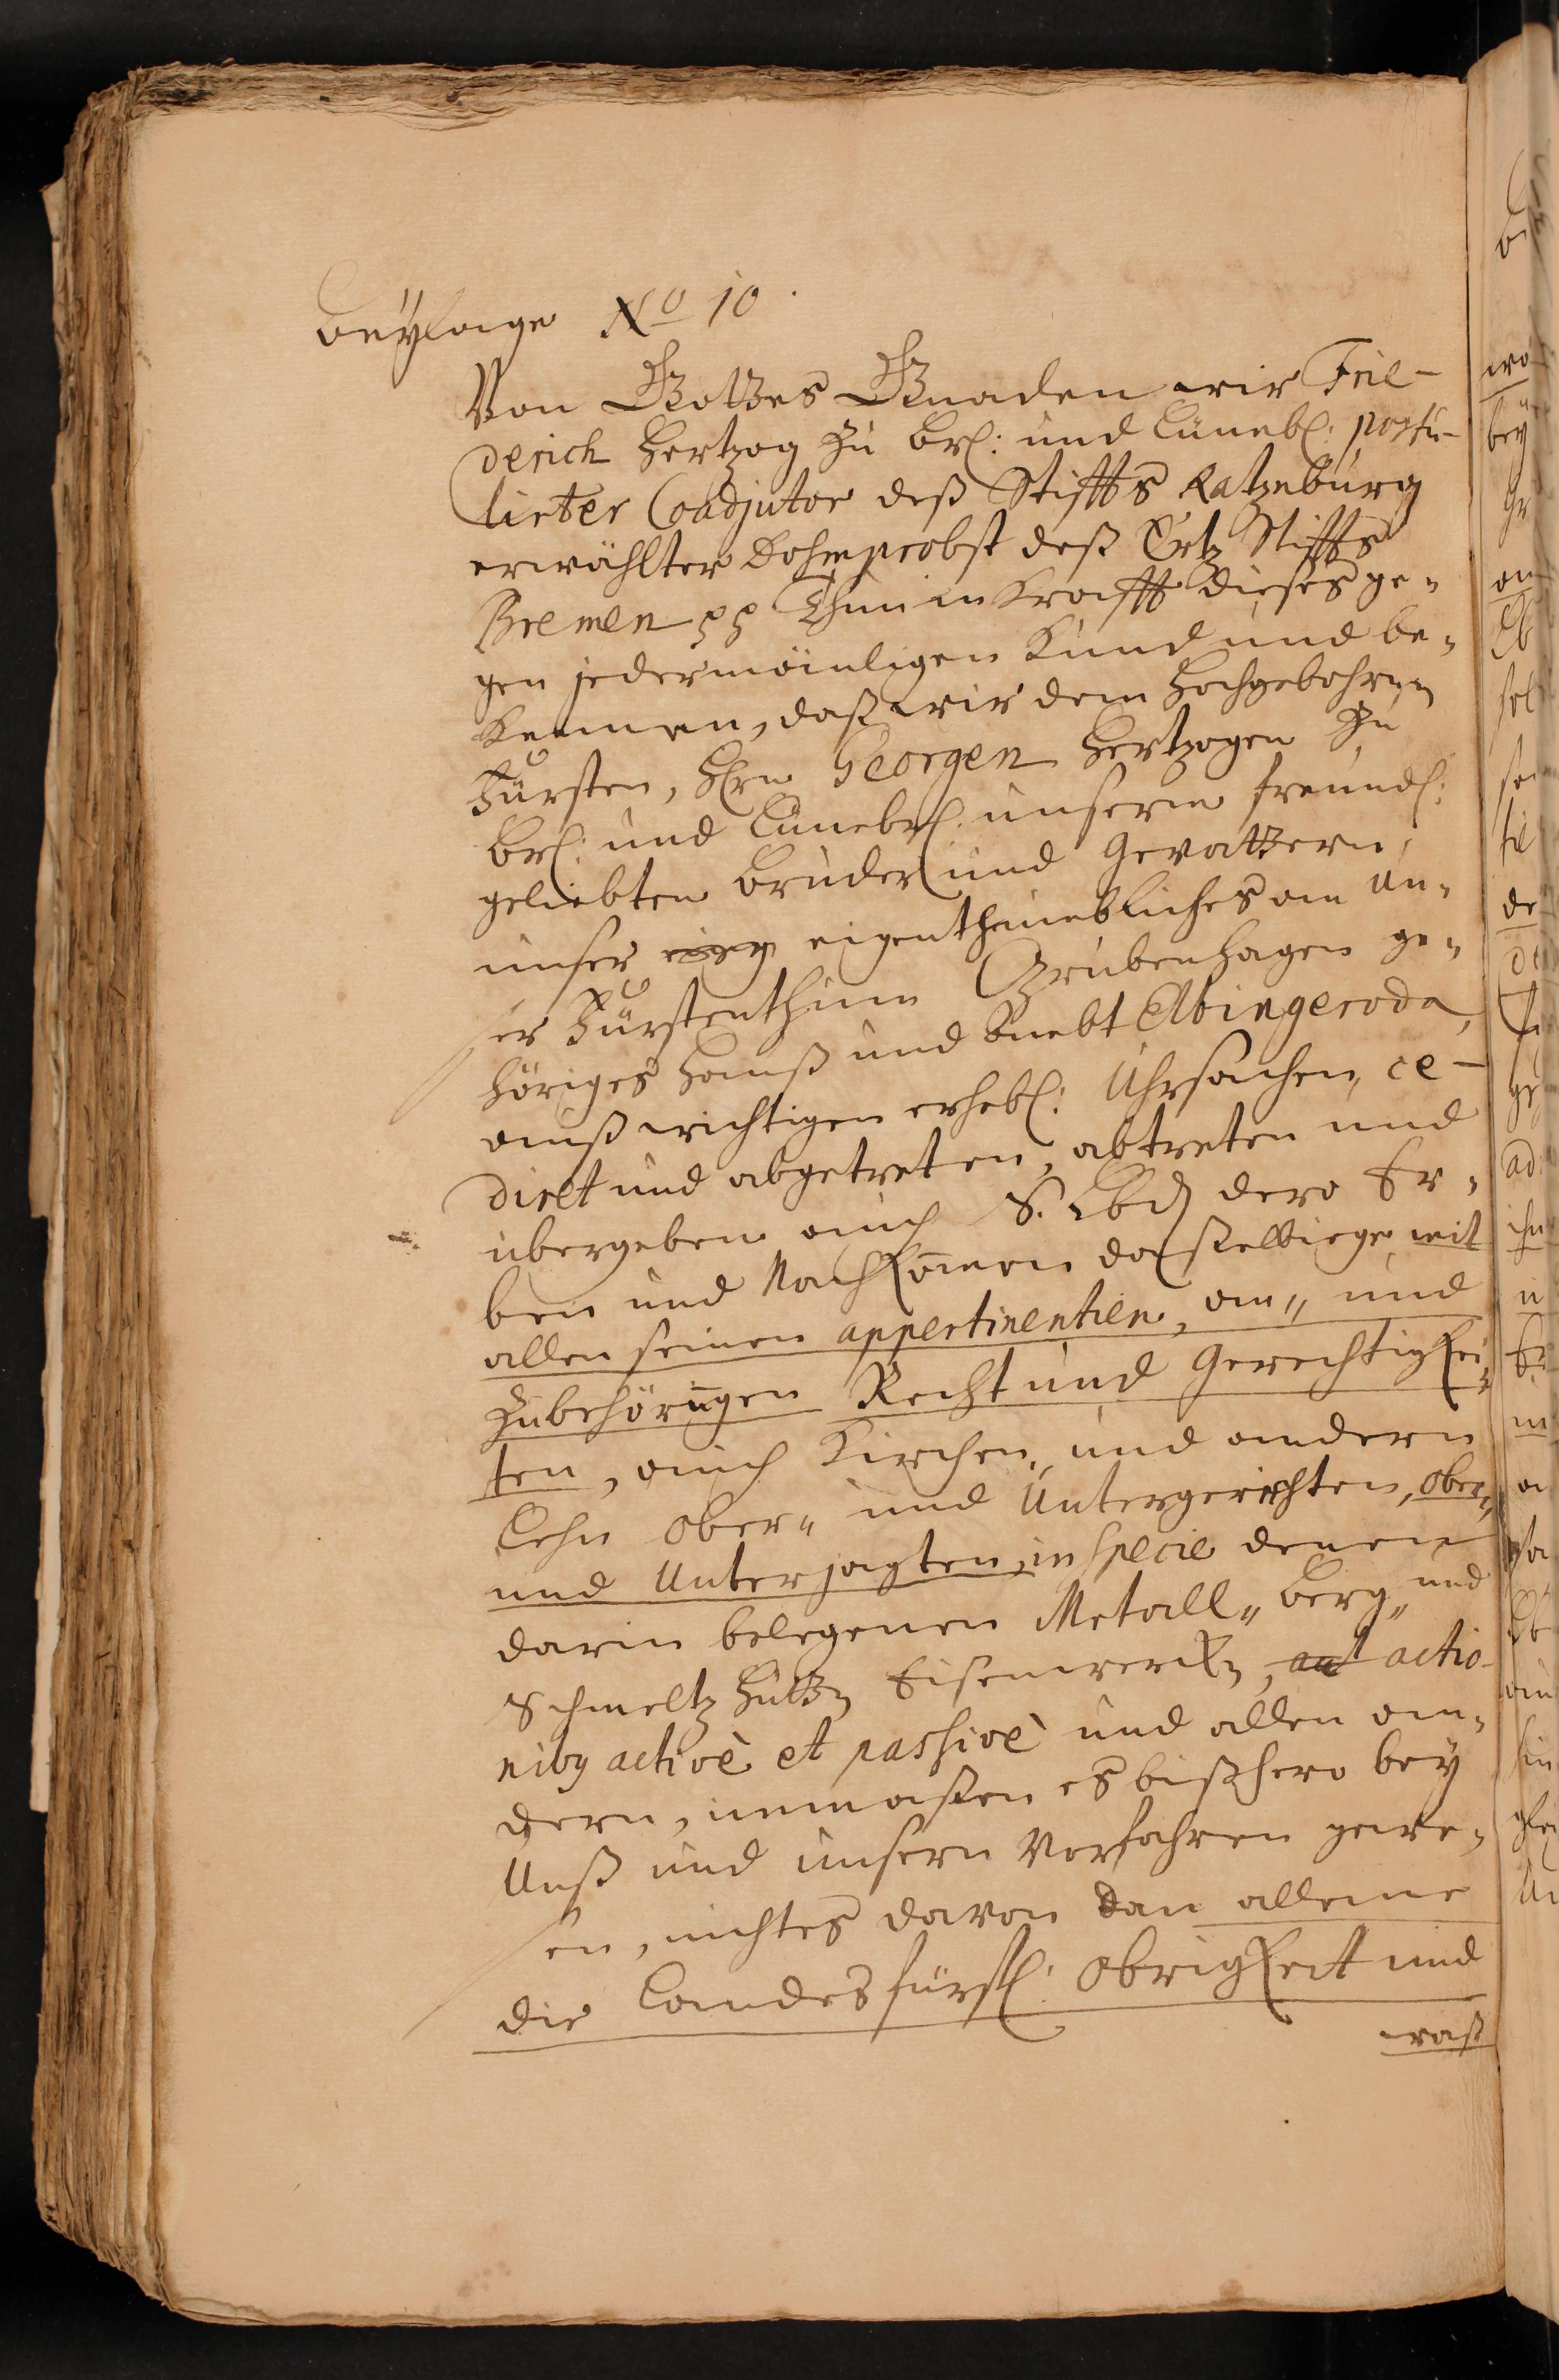 Beylage No 10.
Von Gottes Gnaden wir Frie-
derich Hertzog zu Br: und Lüneb: postu-
lirter Coadjutor deß Stiffts Ratzeburg
erwählter Dohmprobst deß Ertz Stiffts
Bremen pp Thun in Krafft dieses ge-
gen jedermänligen Kund und be-
kennen, daß wir dem Hochgebohrnen
Fürsten, Hrn Georgen Hertzogen zu
Br: und Lünebr: unserm freundl:
geliebten Bruder und Gevattern,
unser eigenthumbliches am un-
ser Fürstenthum Grubenhagen ge-
höriges Hauß und Ambt Elbingeroda,
auß wichtigen erhebl: Uhrsachen, ce-
diret und abgetreten, abtreten und
übergeben auch S. Lbd dero Er-
ben und Nachkommen dasselbiege mit
allen seinen appertinentien, an- und
Zubehörungen Recht und Gerechtigkei-
ten, auch Kirchen- und andern
Lehn Ober- und Untergerichten, Ober-
und Unterjagten, in specie denen
darin belegenen Metall- Berg- und
Schmeltz Hütten Eisenwercken, aut actio-
nibus activè et passivè und allen an-
dern, inmaßen es bißhero bey
Unß und unsern Vorfahren gewe-
sen, nichtes davon dan alleine
die Landesfürstl: Obrigkeit und
waß